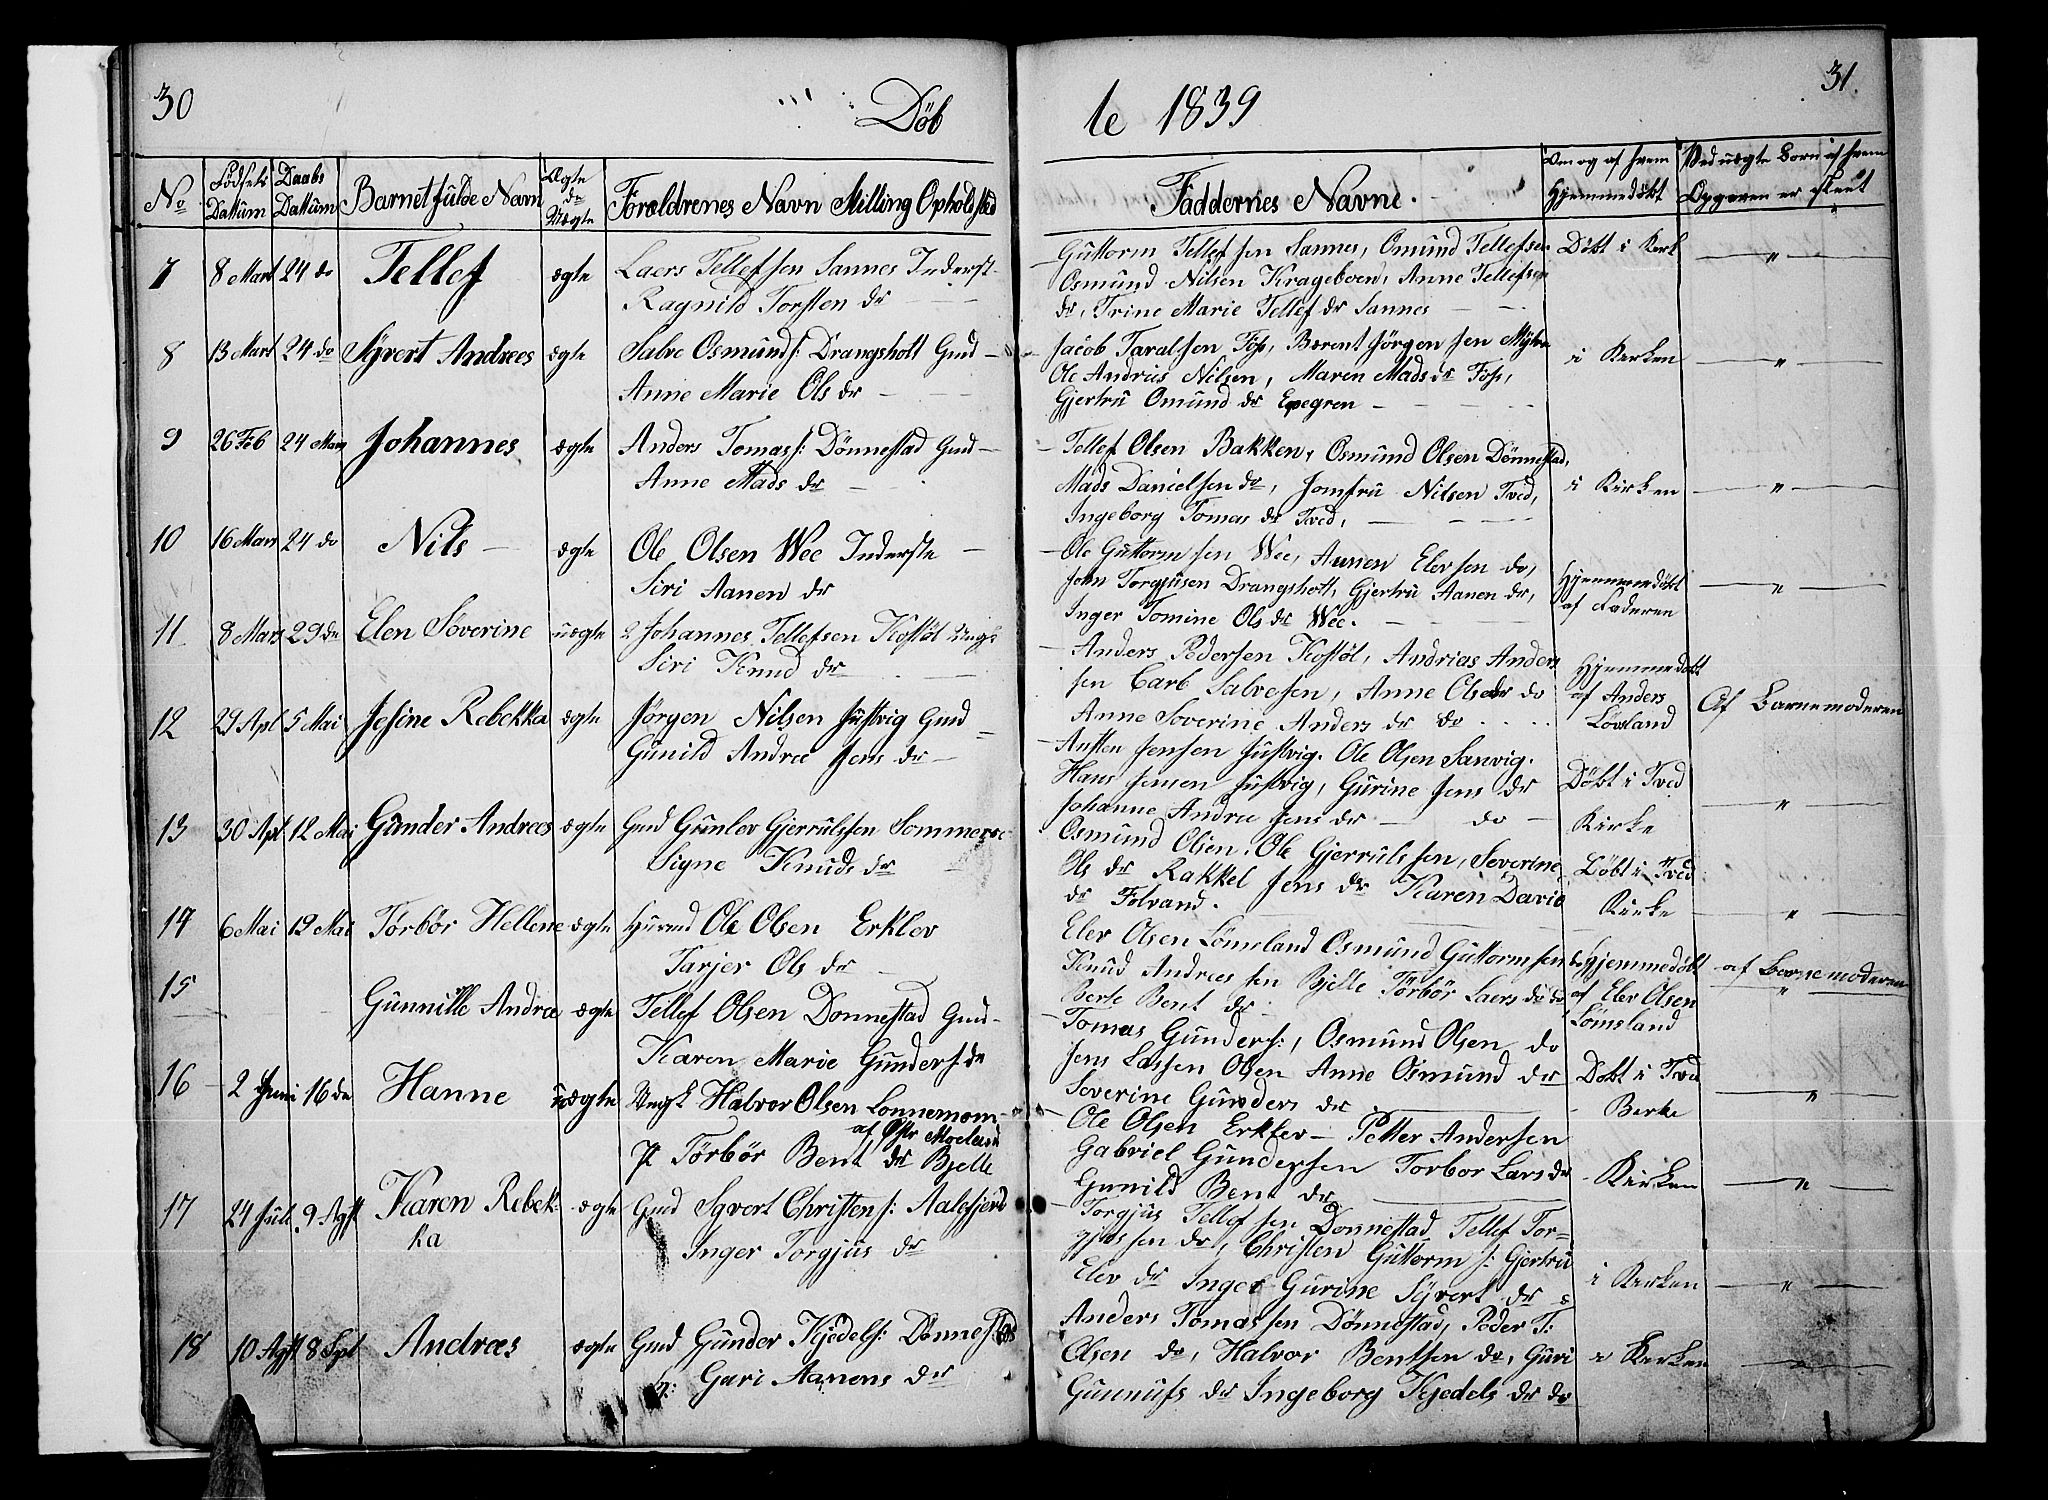 30
Döb
te 1839
31.
No
Födsels Dattum
Daabs Dattum
Barnet fulde Navn
Ægte do Uægte
Forældrenes Navn Stilling Opholdsted
Faddernes Navne.
Om og af hvem Hjemmedöbt
Ved uægte Börn af hvem Opgaven er skeet
7 8 Mart 24 do Tellef ægte Laers Tellefsen Sannes Inderst-
Ragnild Torsten dr
Guttorm Tellefsen Sannes, Omund Tellefsen
Osmund Nilsen Krageboen, Anne Tellefsen
dr, Trine Marie Tellef dr Sannes
Döbt i Kerk
8 13 Mart 24 do Syvert Andrees ægte Salve Osmunds: Drangsholt Gmd
Anne Marie Ols dr
Jacob Taralsen Fos, Bærent Jörgensen
Ole Andrius Nilsen, Maren Mads dr Fos,
Gjertru Omund dr Egegren
i Kerken
9 26 Feb 24 Mars Johannes ægte Anders Tomass: Dönnestad Gmd
Anne Mads dr
Tellef Olsen Bakken, Osmund Olsen Dönnestad,
Mads Danielsen do, Jomfru Nilsen Tved,
Ingeborg Tomas dr Tved,
i Kirken
10 16 Mars 24 do Nils ægte Ole Olsen Wee Inderste
Siri Aanen dr
Ole Guttormsen Wee, Aanen Elevsen do,
Jens Torgjusen Drangsholt, Gjertru Aanen dr,
Inger Tomine Ols dr Wee.
Hjemmedöbt
af Faderen
11 8 Mars 29 do Elen Söverine uægte Johannes Tellefsen Kostöl Ungk
Siri Knud dr
Anders Pedersen Kostöl, Andrias Anders
sen Carb Salvesen, Anne Olsdr do
Anne Soverine Anders dr do
Hjemmedöbt
af Anders
Lövland
Af Barnemoderen
12 29 Apl 5 Mai Jesine Rebekka ægte Jörgen Nilsen Justvig Gmd
Gunild Andrea Jens dr
Austen Jensen Justvig. Ole Olsen Sanvig.
Hans Jensen Justvig, Gurine Jens dr
Johanne Andrea Jens dr do
Döbt i Tved
Kirke
13 30 Apl 12 Mai Gunder Andreas ægte Gmd Gunlev Gjerrulssen Sommers
Signe Knuds dr
Osmund Olsen. Ole Gjerrulssen, Severine
Ols dr Rakkel Jens dr Karen David
dr Folvand.
Döbt i Tved
Kirke
14 6 Mai 19 Mai Torbör Hellene ægte Husmd Ole Olsen Erklev
Tarjer Ols dr
Elev Olsen Lömsland Osmund Guttormsen do
Knud Andreessen Bjelle Törbör Laers dr do
Berte Bent dr
Hjemmedöbt
af Elev Olsen
Lömsland
af Barnemoderen
15 Gunnille Andrea ægte Tellef Olsen Donnestad Gmd-
Karen Marie Gunders dr
Tomas Gunders:, Osmund Olsen do
Jens Lassen Olsen Anne Osmund dr
Soverine Gunders dr
Döbt i Tved
Kerke
16 2 Juni 16 do Hanne uægte Ungk Halvor Olsen Lonnemom
af Östr Moeland
P Törbör Bent dr Bjelle
Ole Olsen Erklev - Petter Andersen
Gabriel Gundersen Torbor Lars dr
Gunild Bent dr
Kirken
17 24 Juli 9 Agst Karen Rebek-
ka ægte Gmd Syvert Christens: Aalefjerd
Inger Torgjus dr
Torgjus Tellefsen Donnestad Tellef Tor=
gjussen do, Christen Guttorm s: Gjertru
Elev dr Inger Gurine Syvert dr
i Kirken
18 10 Agst 8 Spt Andreas ægte Gmd Gunder Kjedels: Dönnestad
Guri Aanens dr
Anders Tomassen Dönnestad, Peder T:
Olsen do, Halvor Bentsen do, Guri
Gunnufs dr Ingeborg Kjedels dr do
i Kerken